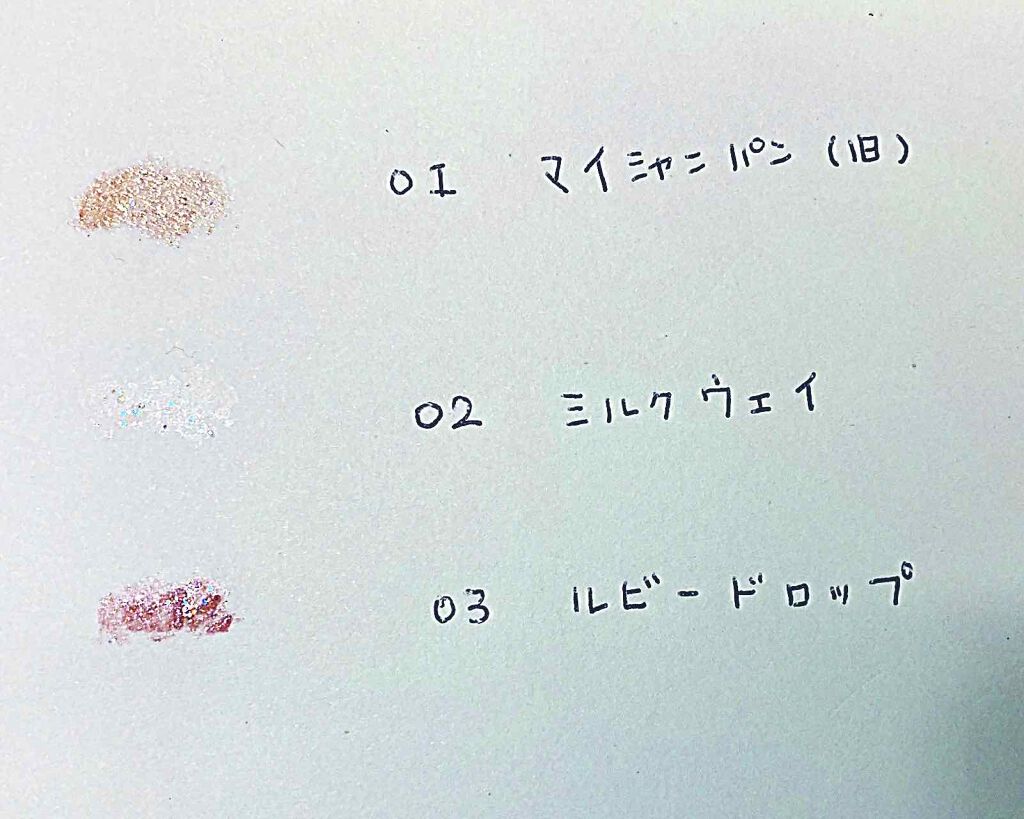 01 マイシャンパン (旧)
02 ミルクウェイ
03 ルビードロップ